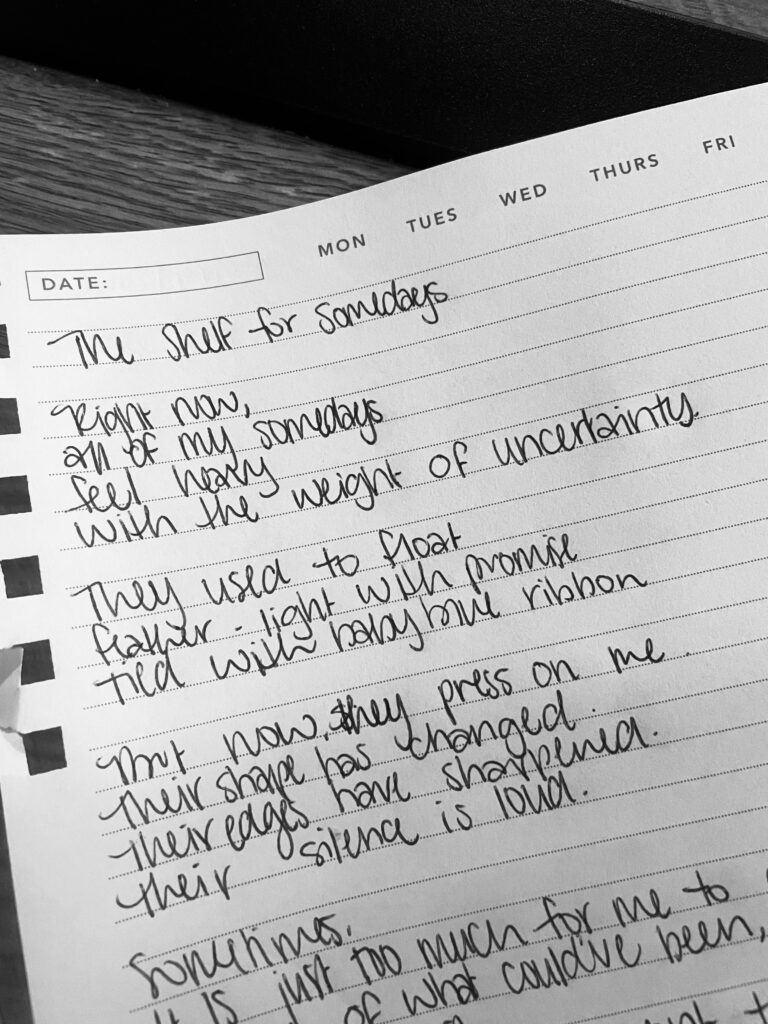 MON TUES WED THURS FRI
DATE:
The shelf for somedays
Right now,
all of my somedays
feel heavy
with the weight of uncertainty.
They used to float
feather-light with promise
tied with baby blue ribbon
But now, they press on me.
Their shape has changed.
Their edges have sharpened.
Their silence is loud.
Sometimes,
it is just too much for me to
of what could've been,